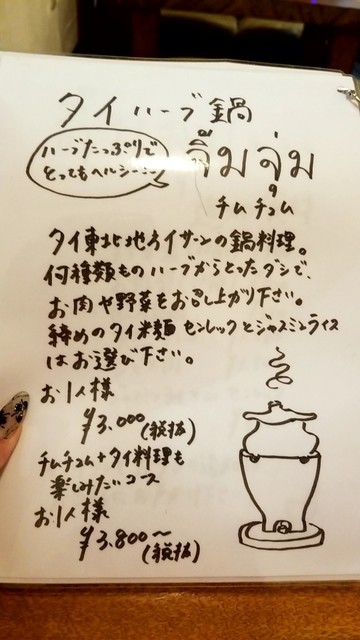 タイハーブ鍋
ハーブたっぷりで
とってもヘルシー
จิ้มจุ่ม
チムチュム
タイ東北地方イサーンの鍋料理。
何種類ものハーブからとったダシで、
お肉や野菜をお召し上がり下さい。
締めのタイ米麺 センレックとジャスミンライス
はお選び下さい。
お1人様
¥3,000(税抜)
チムチュム+タイ料理も
楽しみたいコース
お1人様
¥3,800～
(税抜)